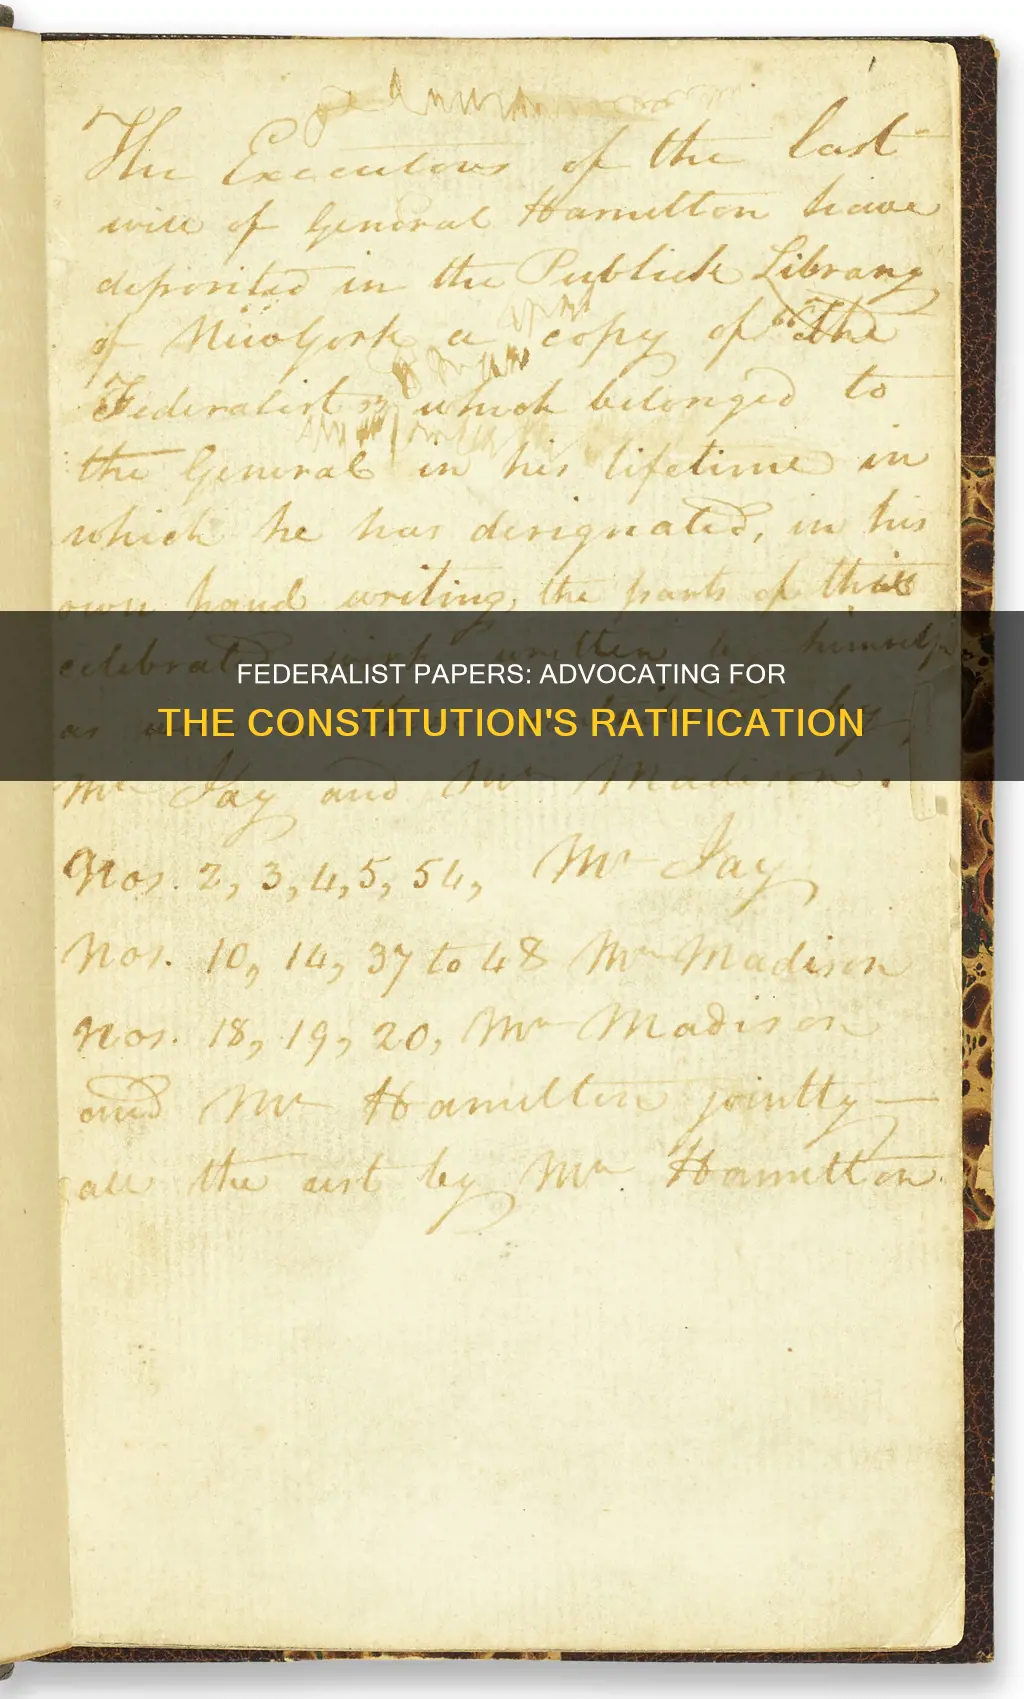 The Executors of the last
will of General Hamilton have
deposited in the Publick Library
of New York a copy of "The
Federalist" which belonged to
the General in his lifetime in
which he has designated, in his
own hand writing, the parts of that
celebrated work written by himself
FEDERALIST PAPERS: ADVOCATING FOR
THE CONSTITUTION'S RATIFICATION
as by
Mr Jay and Mr Madison.
Nos. 2, 3, 4, 5, 54, Mr Jay
Nos. 10, 14, 37 to 48 Mr Madison
Nos. 18, 19, 20, Mr Madison
and Mr Hamilton jointly—
all the rest by Mr Hamilton.